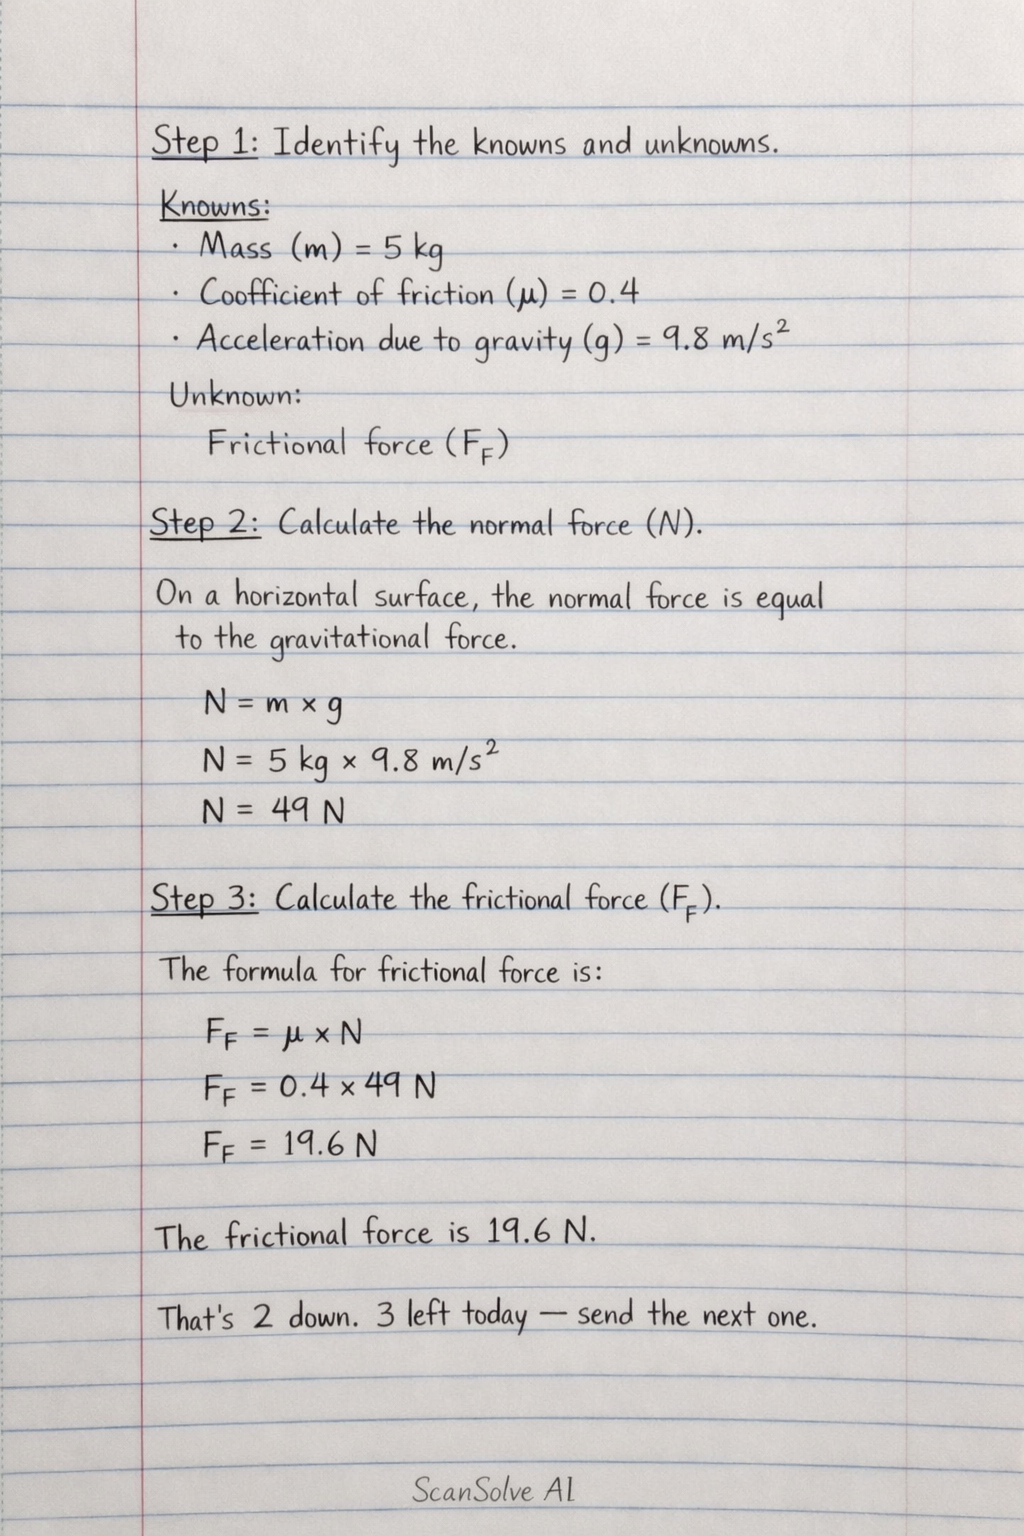 Step 1: Identify the knowns and unknowns.
Knowns:
· Mass (m) = 5 kg
· Coofficient of friction (μ) = 0.4
· Acceleration due to gravity (g) = 9.8 m/s²
Unknown:
Frictional force (F_F)
Step 2: Calculate the normal force (N).
On a horizontal surface, the normal force is equal
to the gravitational force.
N = m × g
N = 5 kg × 9.8 m/s²
N = 49 N
Step 3: Calculate the frictional force (F_F).
The formula for frictional force is:
F_F = μ × N
F_F = 0.4 × 49 N
F_F = 19.6 N
The frictional force is 19.6 N.
That's 2 down. 3 left today — send the next one.
ScanSolve AI